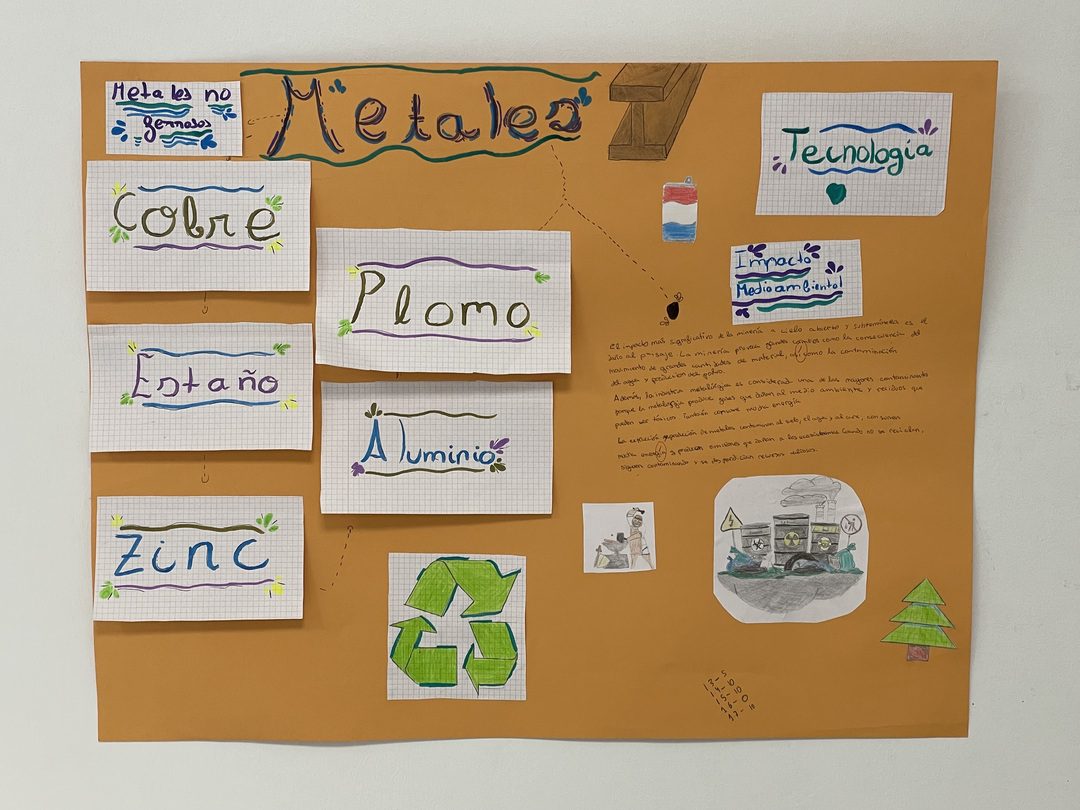 Metales no
ferrosos
Metales
Tecnología
Cobre
Plomo
Impacto
Medioambiental
Estaño
Aluminio
Zinc
El impacto más significativo de la minería a cielo abierto y subterránea es el
daño al paisaje. La minería provoca grandes cambios como la consecuencia del
movimiento de grandes cantidades de material, así como la contaminación
del agua y producción del polvo.
Además, la industria metalúrgica es considerad una de las mayores contaminantes
porque la metalurgia produce gases que dañan al medio ambiente y residuos que
pueden ser tóxicos. También consume mucha energía
La extracción y producción de metales contaminan el suelo, el agua y el aire, consumen
mucha energía y producen emisiones que dañan a los ecosistemas. Cuando no se reciclan,
siguen contaminando y se desperdician recursos valiosos.
13-5
14-10
15-10
16-0
17-10